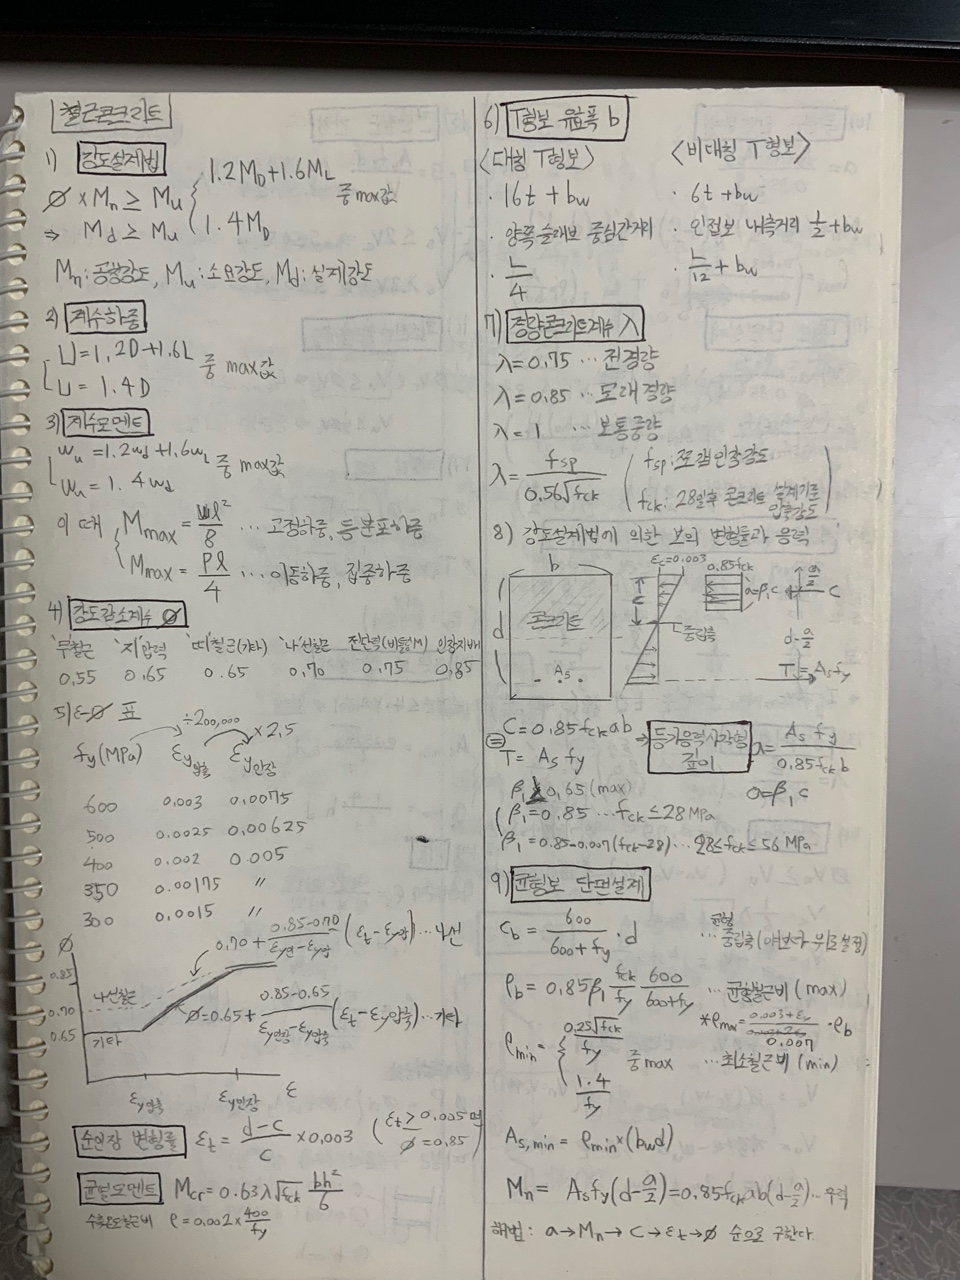 철근콘크리트
1) 강도설계법
∅ × Mn ≥ Mu { 1.2MD+1.6ML
1.4MD 중 max값
⇒ Md ≥ Mu
Mn: 공칭강도, Mu: 소요강도, Md: 설계강도
2) 계수하중
U=1.2D+1.6L
U=1.4D 중 max값
3) 계수모멘트
wu=1.2wd+1.6wL
wu=1.4wd 중 max값
이 때 { Mmax = wl²/8 … 고정하중, 등분포하중
Mmax = Pl/4 … 이동하중, 집중하중
4) 강도감소계수 ∅
'무'철근 '지'압력 '띠'철근(기타) '나'선철근 전단력(비틀M) 인장지배
0.55 0.65 0.65 0.70 0.75 0.85
5) ε-∅ 표
÷200,000 ×2.5
fy(MPa) εy압축 εy인장
600 0.003 0.0075
500 0.0025 0.00625
400 0.002 0.005
350 0.00175 〃
300 0.0015 〃
∅
0.85
0.70
0.65
0.70 + (0.85-0.70)/(εy인-εy압) (εt-εy압)…나선
나선철근
기타
∅=0.65+ (0.85-0.65)/(εy인장-εy압축) (εt-εy압축)…기타
εy압축 εy인장 ε
순인장 변형률 εt = (d-c)/c ×0.003 (εt≥0.005면 ∅=0.85)
균열모멘트 Mcr=0.63λ√fck bh²/6
수축온도철근비 ρ=0.002×400/fy
6) T형보 유효폭 b
<대칭 T형보> <비대칭 T형보>
· 16t + bw · 6t + bw
· 양쪽슬래브 중심간거리 · 인접보 내측거리 ½+bw
· L/4 · L/12 + bw
7) 경량콘크리트계수 λ
λ=0.75 … 전경량
λ=0.85 … 모래경량
λ=1 … 보통중량
λ= fsp/(0.56√fck) (fsp: 쪼갬인장강도
fck: 28일후 콘크리트 설계기준압축강도)
8) 강도설계법에 의한 보의 변형률과 응력
b εc=0.003 0.85fck
d 콘크리트 c a=β1c a/2 C
중립축 d-a/2
As T=Asfy
C=0.85fck ab
T= As fy
⇒ 등가응력사각형 깊이 a= As fy/(0.85fck b)
a=β1c
β1 ≥ 0.65 (max)
β1=0.85 …fck≤28MPa
β1=0.85-0.007(fck-28)… 28≤fck≤56 MPa
9) 균형보 단면설계
Cb= 600/(600+fy)·d …균형중립축(아래보다 위로설정)
ρb=0.85β1 fck/fy 600/(600+fy) …균형철근비 (max)
*ρmax= (0.003+εy)/0.007 ·ρb
ρmin= { 0.25√fck/fy
1.4/fy 중 max …최소철근비 (min)
As,min = ρmin×(bwd)
Mn= Asfy(d-a/2)=0.85fckab(d-a/2)…우력
해법: a→Mn→C→εt→∅ 순으로 구한다.